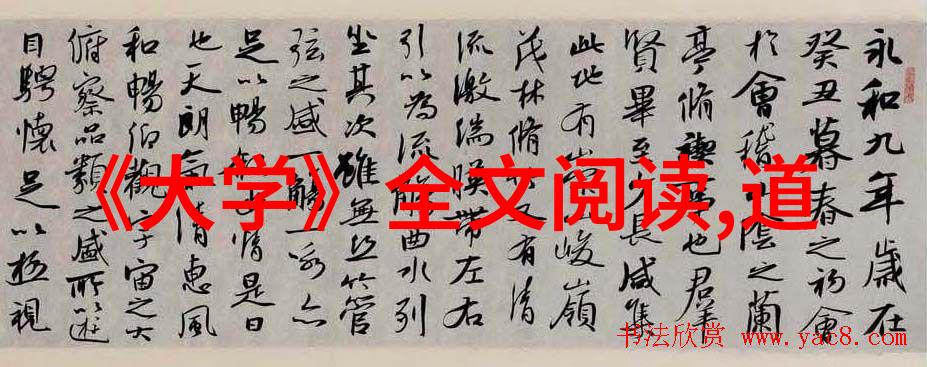 永和九年歲在
癸丑暮春之初會
於會稽山陰之蘭
亭脩禊事也羣
賢畢至少長咸集
此地有山峻嶺
茂林脩又有清
流激湍暎帶左右
引以為流觴曲水列
坐其次雖無絲竹管
弦之盛一觴一詠亦
足以暢情是日
也天朗氣清惠風
和暢仰觀宇宙之大
俯察品類之盛所以遊
目騁懷足以極視
《大学》全文阅读,道
书法欣赏 www.yac8.com